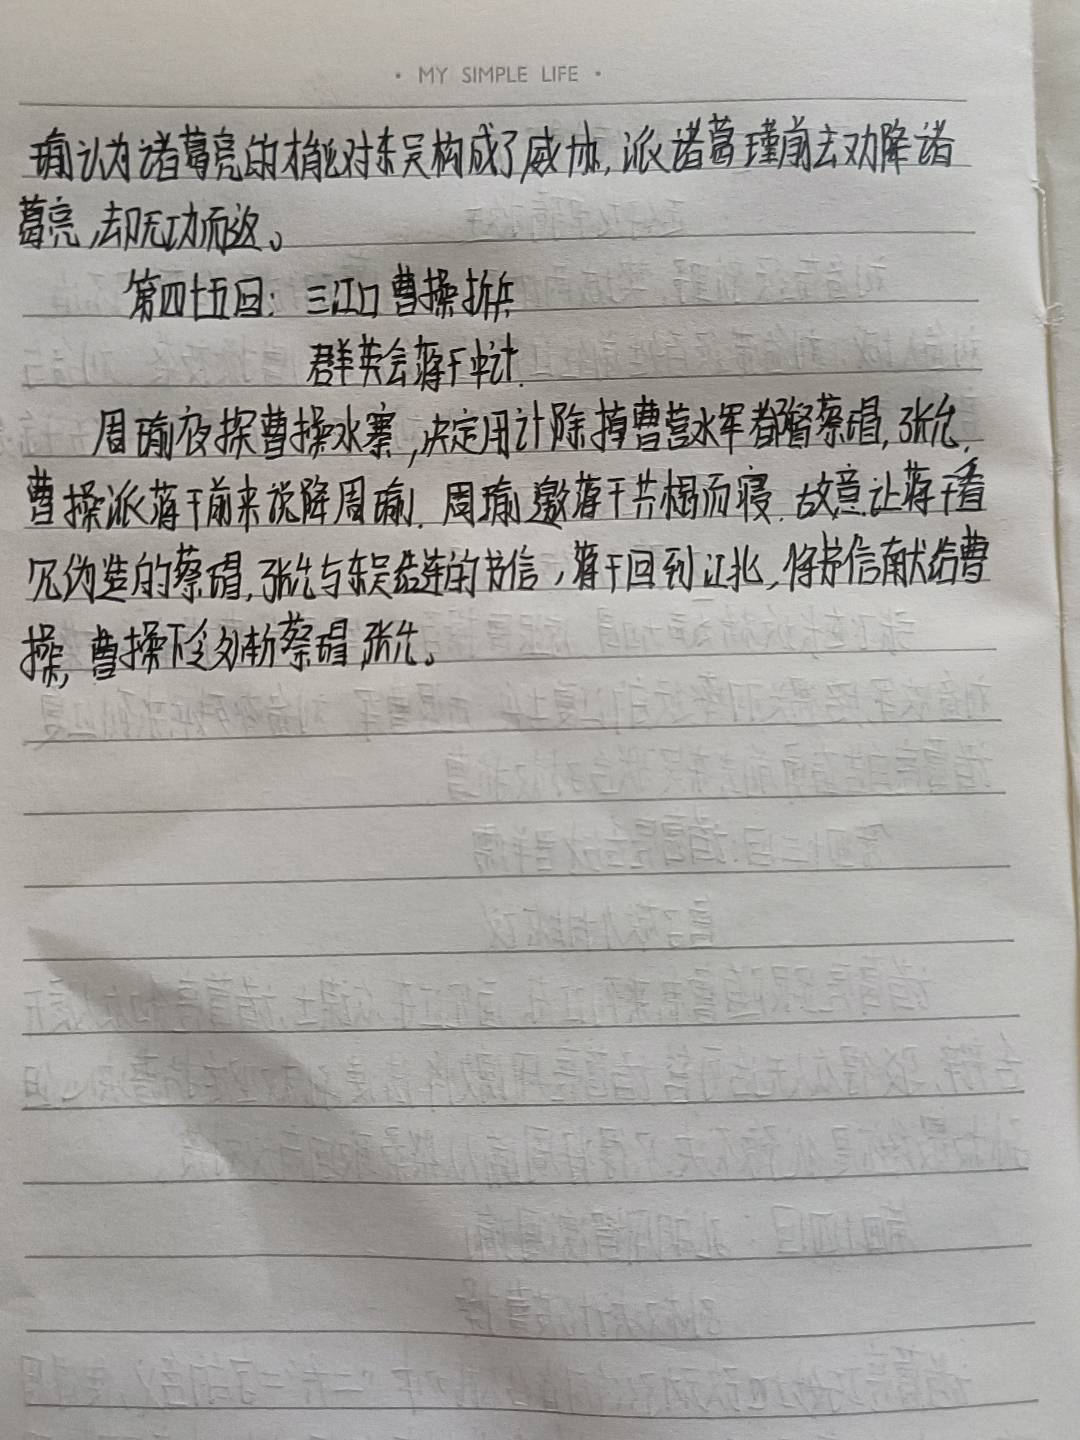 · MY SIMPLE LIFE ·
瑜认为诸葛亮的才能对东吴构成了威胁,派诸葛瑾前去劝降诸
葛亮,却无功而返。
第四十五回: 三江口曹操折兵
群英会蒋干中计.
周瑜夜探曹操水寨,决定用计除掉曹营水军都督蔡瑁,张允,
曹操派蒋干前来说降周瑜. 周瑜邀蒋干共榻而寝. 故意让蒋干看
见伪造的蔡瑁,张允与东吴结连的书信,蒋干回到江北,将书信献给曹
操,曹操下令处斩蔡瑁,张允。